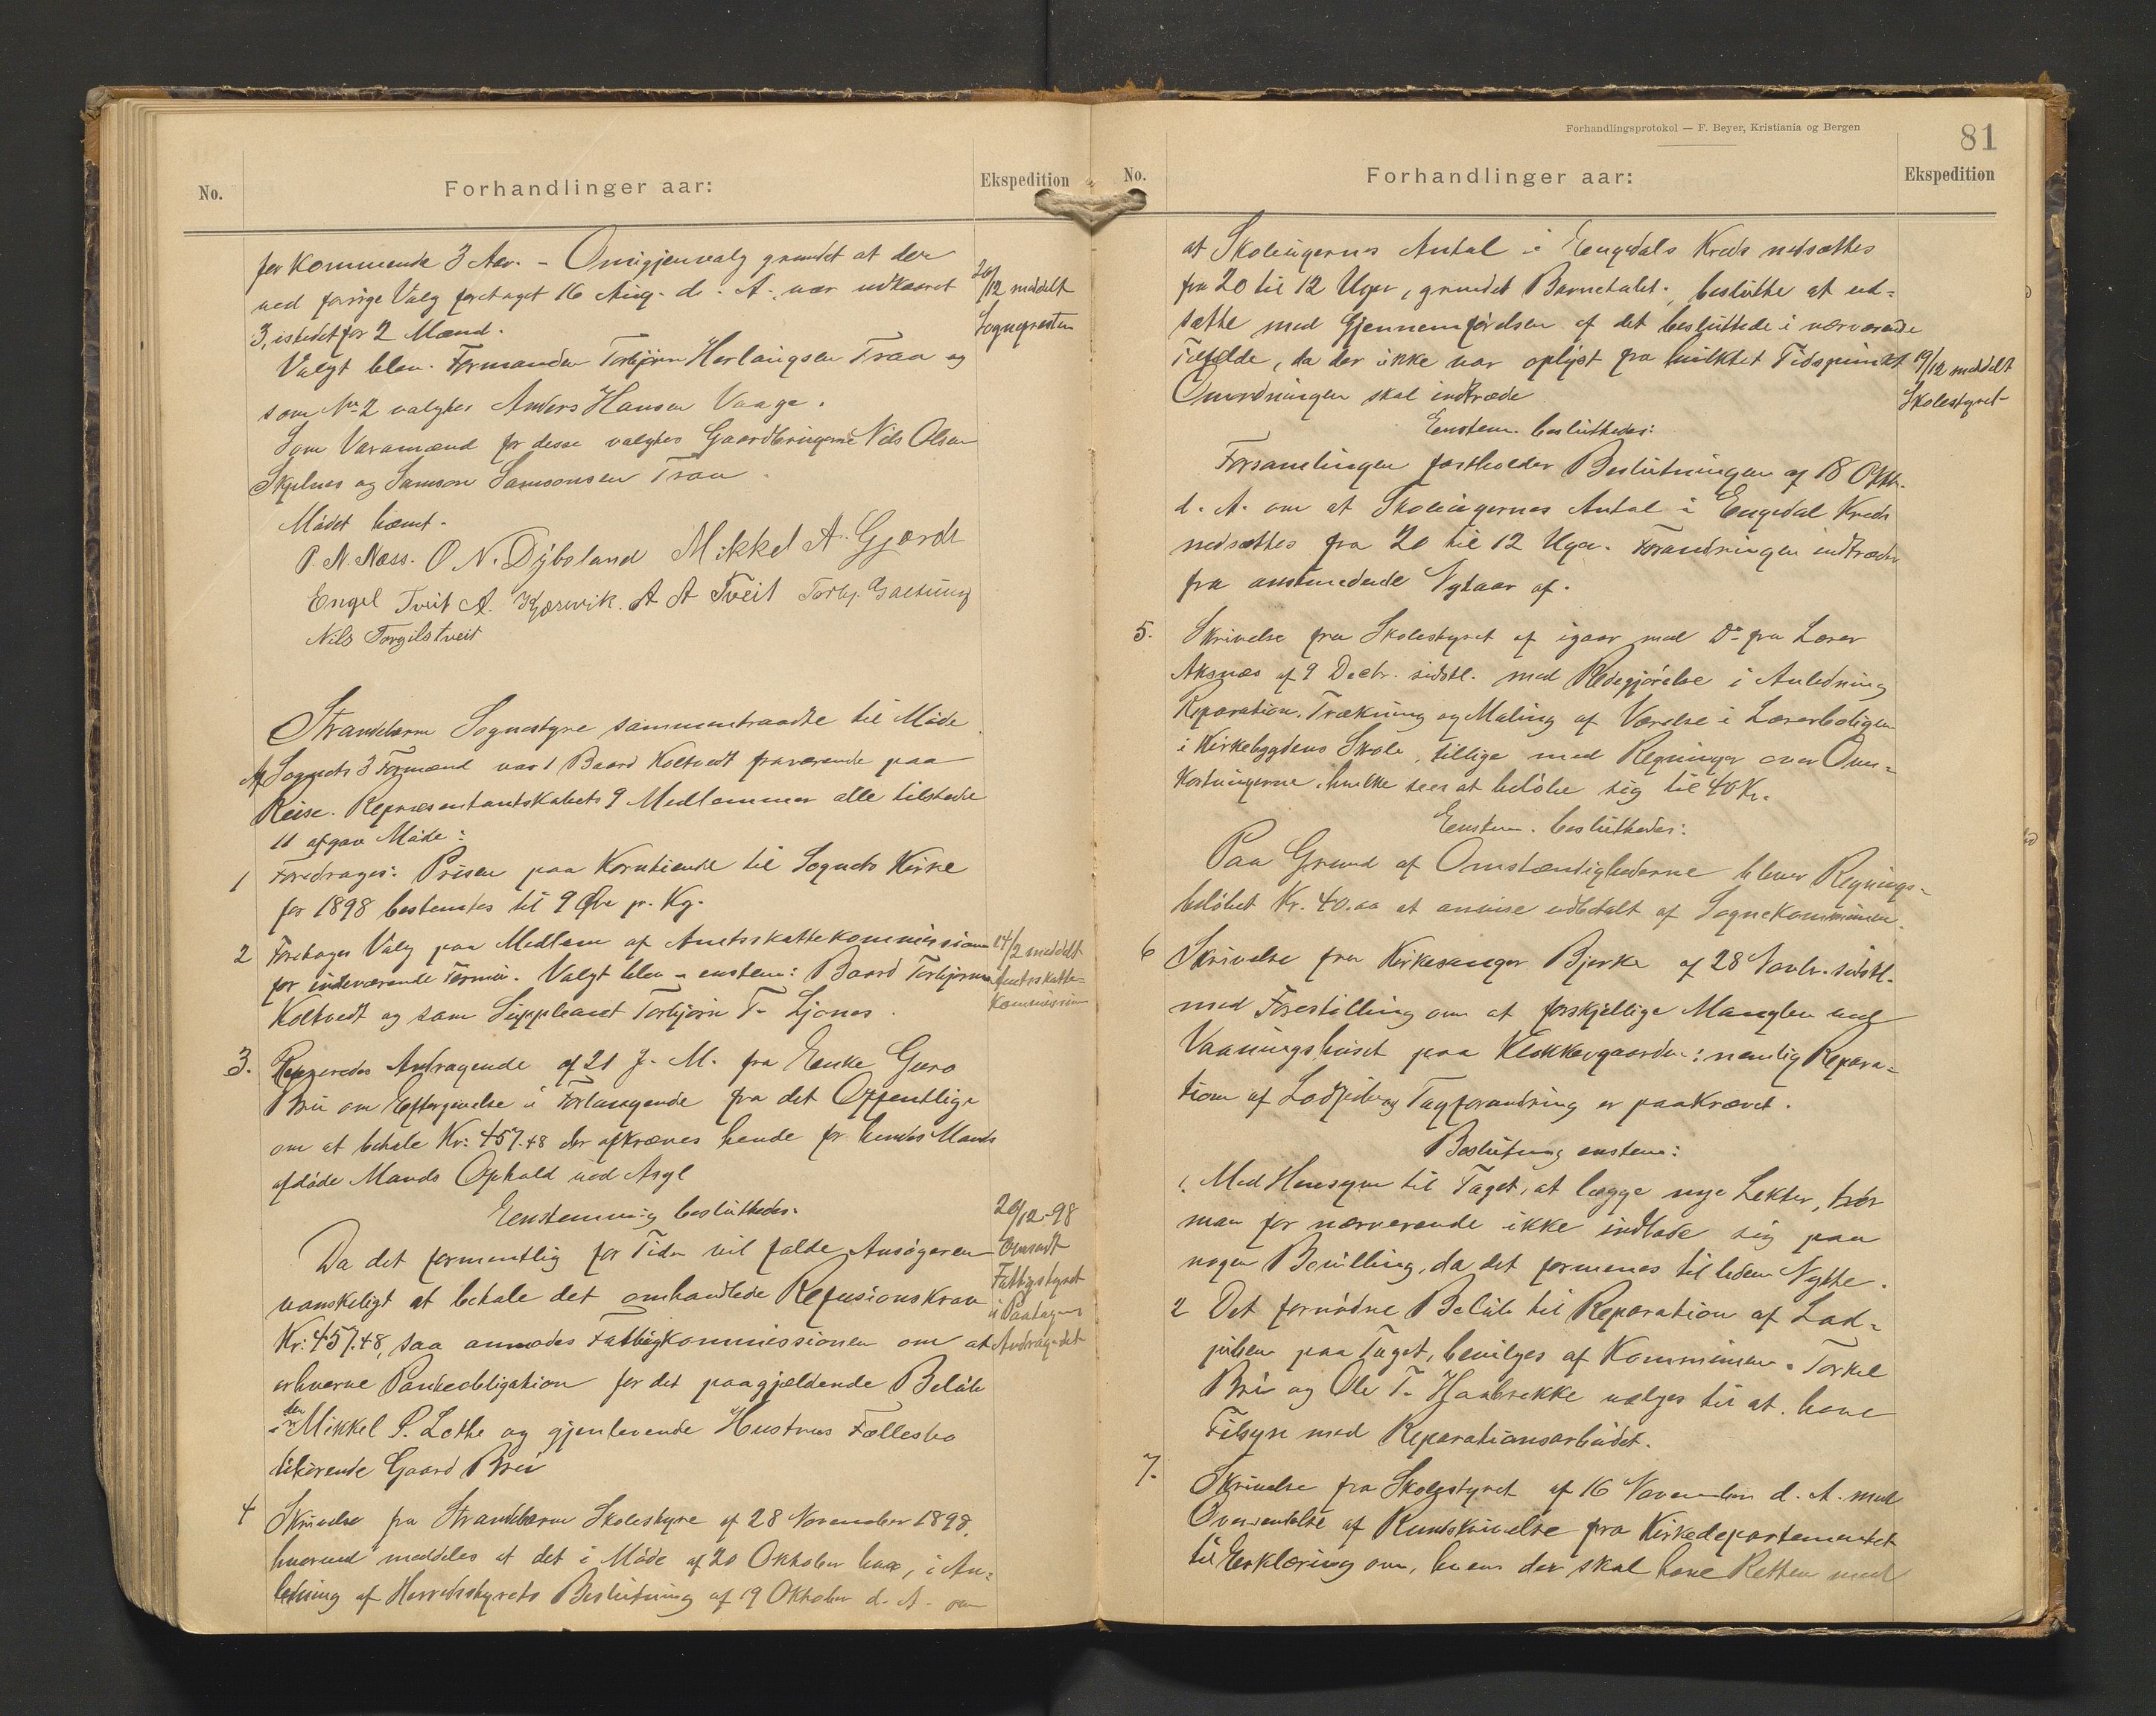 No.
Forhandlinger aar:
Ekspedition
for kommende 3 Aar. - Omigjenvalg grundet at der
ved forrige Valg foretaget 16 Aug. d. A. var udkaaret
3, istedetfor 2 Mænd.
20/12 meddelt
Sognepresten
Valgt blev. Formanden Torbjørn Herlaugsen Traa og
som No 2 valgtes Anders Hansen Vaage.
Som Varamænd for desse valgtes Gaardbrugerne Nils Olsen
Skjelnes og Samson Samsonsen Traa.
Mødet hævet.
P. N. Næss. O N. Dybsland Mikkel A. Gjerde
Engel Tveit A. Kjærevik. A A Tveit Torbj.
Nils Torgilstveit
Strandebarm Sognestyre sammentraadte til Møde.
Af Sognets 3 Formænd var 1 Baard Koltvedt fraværende paa
Reise. Repræsentantskabets 9 Medlemmer alle tilstede
11 afgav Møde:
1 Foredroges: Prisen paa Korntiende til Sognets Kirke
for 1898 bestemtes til 9 Øre pr. Kg.
2 Foretoges Valg paa Medlem af Amtsskattekommissionen
for indeværende Termin. Valgt blev - enstem: Baard Torbjørnsen
Koltvedt og som Suppleant Torbjørn T. Ljones.
14/2 meddelt
Amtsskatte-
Kommission
3. Andragende af 21 f. M. fra Enke Guro
Bru om Eftergivelse i Forlangende fra det Offentlige
om at betale Kr: 457.48 der afkræves hende for hendes Mands
afdøde Mands Ophold ved Asyl
Eenstemmig besluttedes.
Da det formentlig for Tiden vil falde Ansøgeren
vanskeligt at betale det omhandlede Refusionskrav
Kr: 457.48, saa anmodes Fattigkommissionen om at
erhverve Panteobligation for det paagjældende Beløb
i den Mikkel P. Lothe og gjenlevende Hustrus Fællesbo
tilhørende Gaard Bru
20/12-98
Omsendt
Fattigstyret
Andragendet
4 Skrivelse fra Strandebarm Skolestyre af 28 November 1898,
hvorved meddeles at det i Møde af 20 Oktober har, i An-
ledning af Herredsstyrets Beslutning af 19 Oktober d. A. om
Forhandlingsprotokol — F. Beyer, Kristiania og Bergen
81
No.
Forhandlinger aar:
Ekspedition
at Skoleugernes Antal i Engedals Kreds nedsættes
fra 20 til 12 Uger, grundet Barnetalet, besluttet at ud-
sætte med Gjennemførelsen af det besluttede i nærværende
Tilfælde, da der ikke var oplyst fra hvilket Tidspunkt
Omordningen skal indtræde.
19/12 meddelt
Skolestyret
Eenstem. besluttedes:
Forsamlingen fastholder Beslutningen af 18 Oktbr.
d. A. om at Skoleugernes Antal i Engedal Kreds
nedsættes fra 20 til 12 Uger. Forandringen indtræder
fra anstundende Nytaar af.
5. Skrivelse fra Skolestyret af igaar med Do fra Lærer
Aksnæs af 9 Decbr. sidstl. med Redegjørelse i Anledning
Reparation, Trækning og Maling af Værelse i Lærerboligen
i Kirkebygdens Skole, tillige med Regninger over Om-
kostningerne, hvilke sees at beløbe sig til 40 Kr.
Eenstem. besluttedes:
Paa Grund af Omstændighederne blever Regnings-
beløbet Kr. 40.00 at anvise udbetalt af Sognekommunen.
6 Skrivelse fra Kirkesanger Bjerke af 28 Novbr. sidstl.
med Forestilling om at forskjellige Mangler ved
Vaaningshuset paa Klokkergaarden: nemlig Repara-
tion af Lodpiben og Tagforandring er paakrævet.
Beslutning enstem:
1. Med Hensyn til Taget, at lægge nye Lekter, tør
man for nærværende ikke indlade sig paa
nogen Bevilling, da det formenes til liden Nytte.
2 Det fornødne Beløb til Reparation af Lod-
piben paa Taget, bevilges af Kommunen. Torkel
Bru og Ole T. Haabrekke vælges til at have
Tilsyn med Reparationsarbeidet.
7. Skrivelse fra Skolestyret af 16 November d. A. med
Oversendelse af Rundskrivelse fra Kirkedepartementet
til Erklæring om, hvem der skal have Retten med